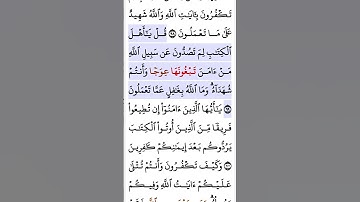 تَكْفُرُونَ بِـَٔايَٰتِ ٱللَّهِ وَٱللَّهُ شَهِيدٌ
عَلَىٰ مَا تَعْمَلُونَ ۝ قُلْ يَٰٓأَهْلَ
ٱلْكِتَٰبِ لِمَ تَصُدُّونَ عَن سَبِيلِ ٱللَّهِ
مَنْ ءَامَنَ تَبْغُونَهَا عِوَجًا وَأَنتُمْ
شُهَدَآءُ ۗ وَمَا ٱللَّهُ بِغَٰفِلٍ عَمَّا تَعْمَلُونَ
۝ يَٰٓأَيُّهَا ٱلَّذِينَ ءَامَنُوٓا۟ إِن تُطِيعُوا۟
فَرِيقًا مِّنَ ٱلَّذِينَ أُوتُوا۟ ٱلْكِتَٰبَ
يَرُدُّوكُم بَعْدَ إِيمَٰنِكُمْ كَٰفِرِينَ
۝ وَكَيْفَ تَكْفُرُونَ وَأَنتُمْ تُتْلَىٰ
عَلَيْكُمْ ءَايَٰتُ ٱللَّهِ وَفِيكُمْ